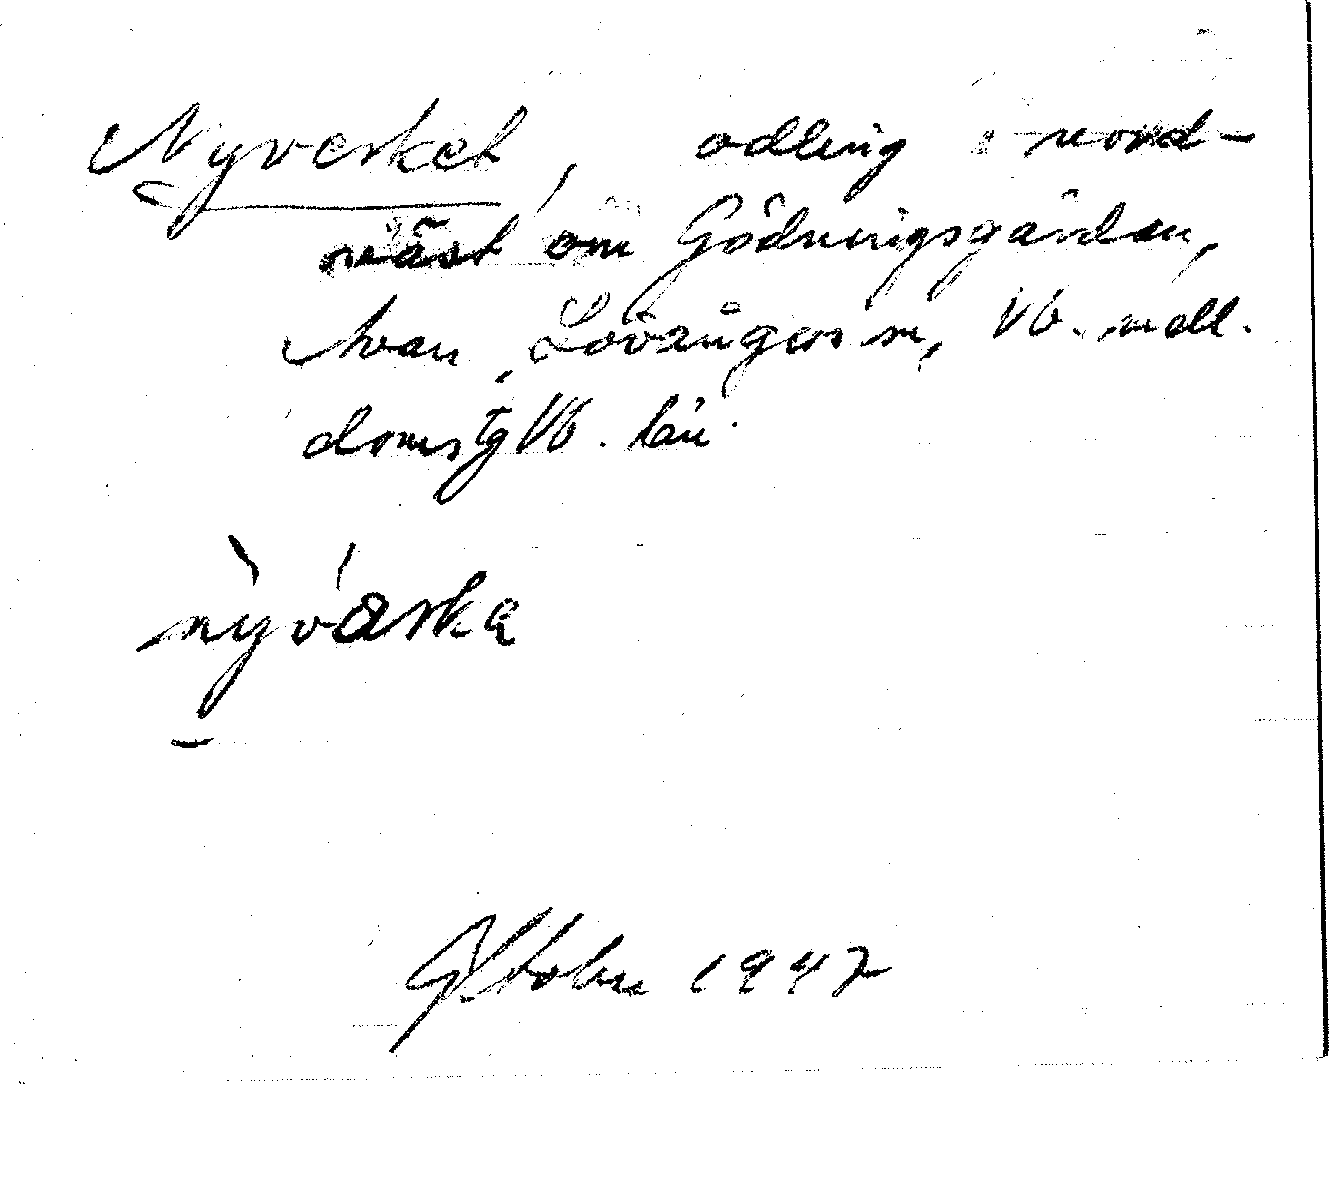 Nyverket, odling i nord-
väst om Gödningsgärdan,
Avan, Lövångers sn, Vb. mell.
domstg Vb. län.
nyvərka
Oktober 1947